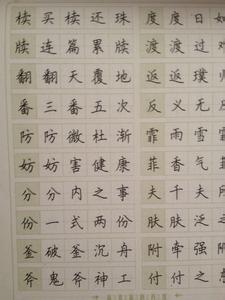 椟买椟还珠 度度日如
牍连篇累牍 渡渡过难
翻翻天覆地 返返璞归
番三番五次 反义无反
防防微杜渐 霏雨雪霏
妨妨害健康 菲香气菲
分分内之事 夫千夫
份一式两份 肤肤泛之
釜破釜沉舟 附牵强附
斧鬼斧神工 付付之